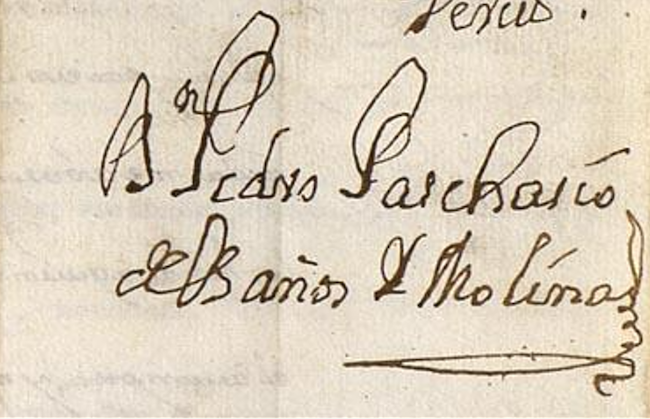 Bn Pedro Paschasio
de Baños Y Molina